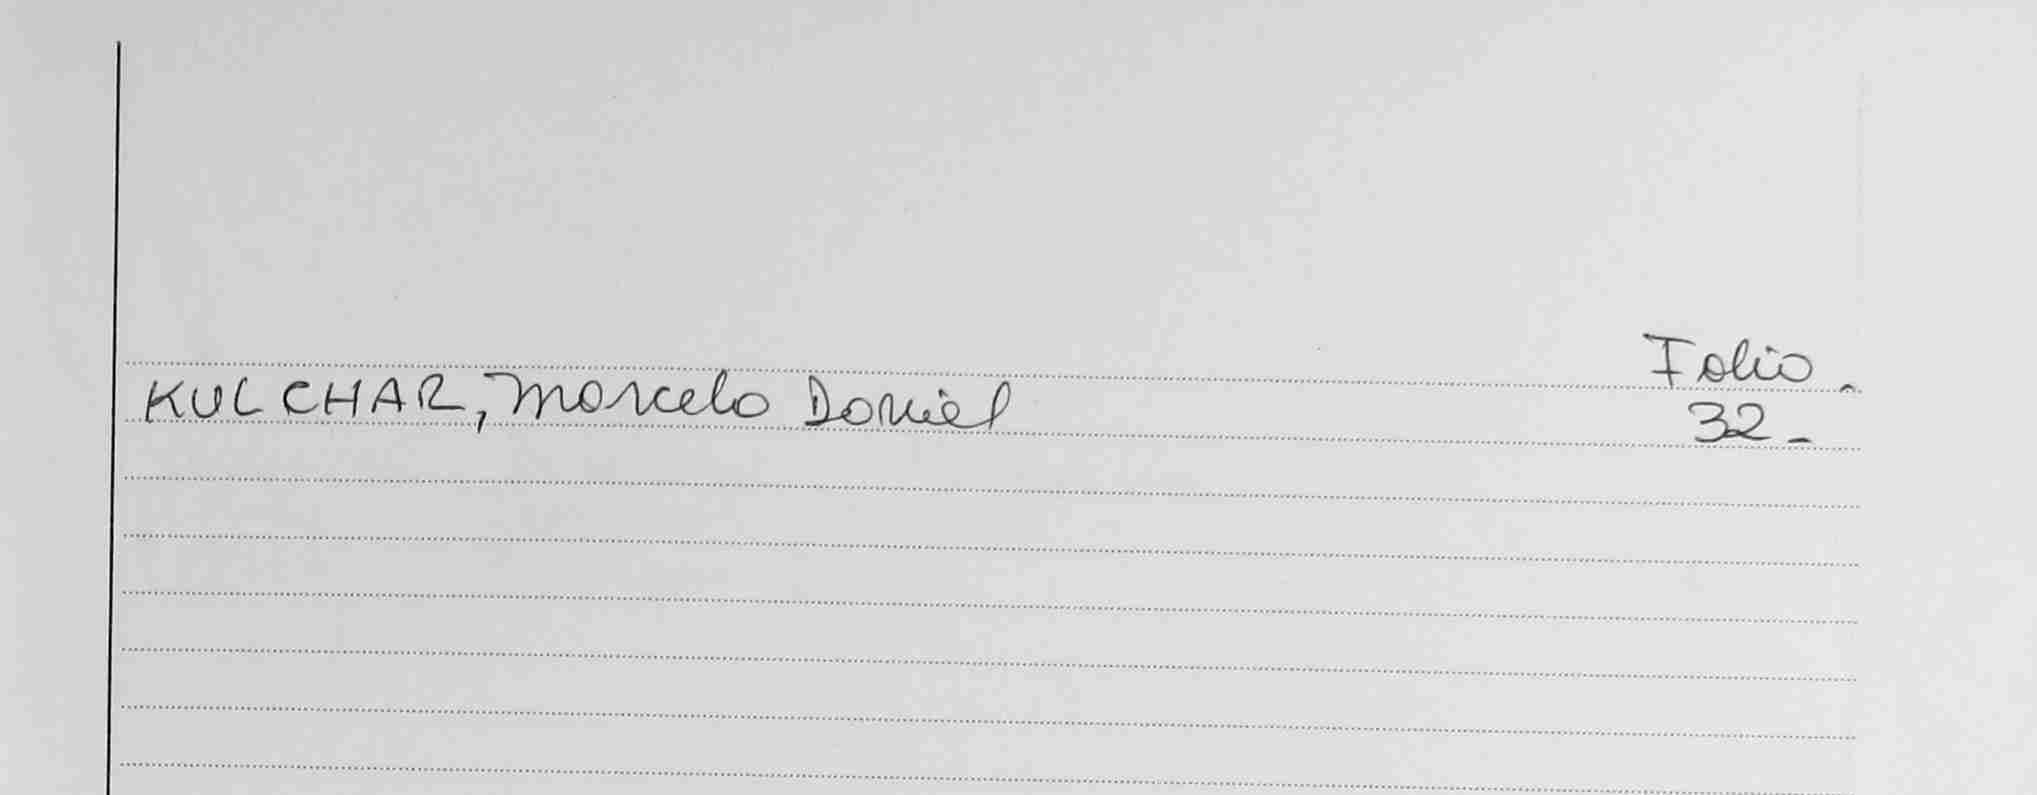 Folio.
KULCHAR, Marcelo Daniel 32-